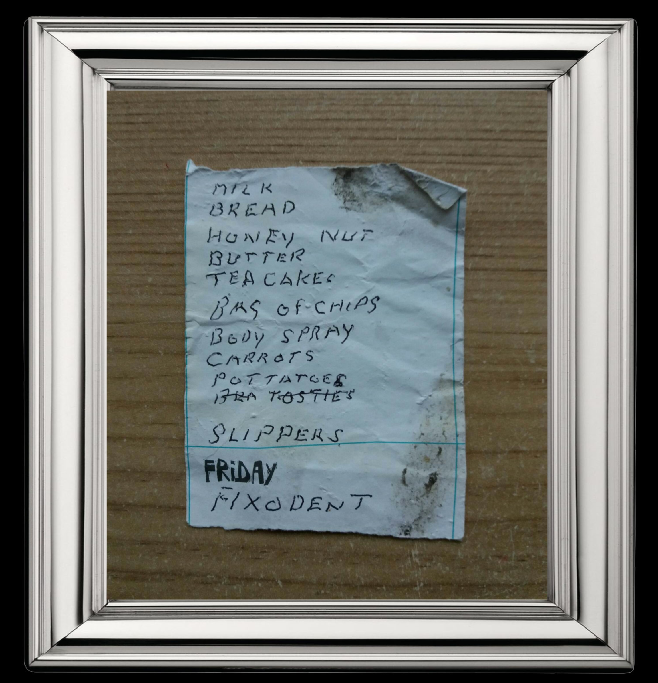 MILK
BREAD
HONEY NUT
BUTTER
TEA CAKES
BAG OF CHIPS
BODY SPRAY
CARROTS
POTTATOES
ROSTIES
SLIPPERS
FRIDAY
FIXODENT